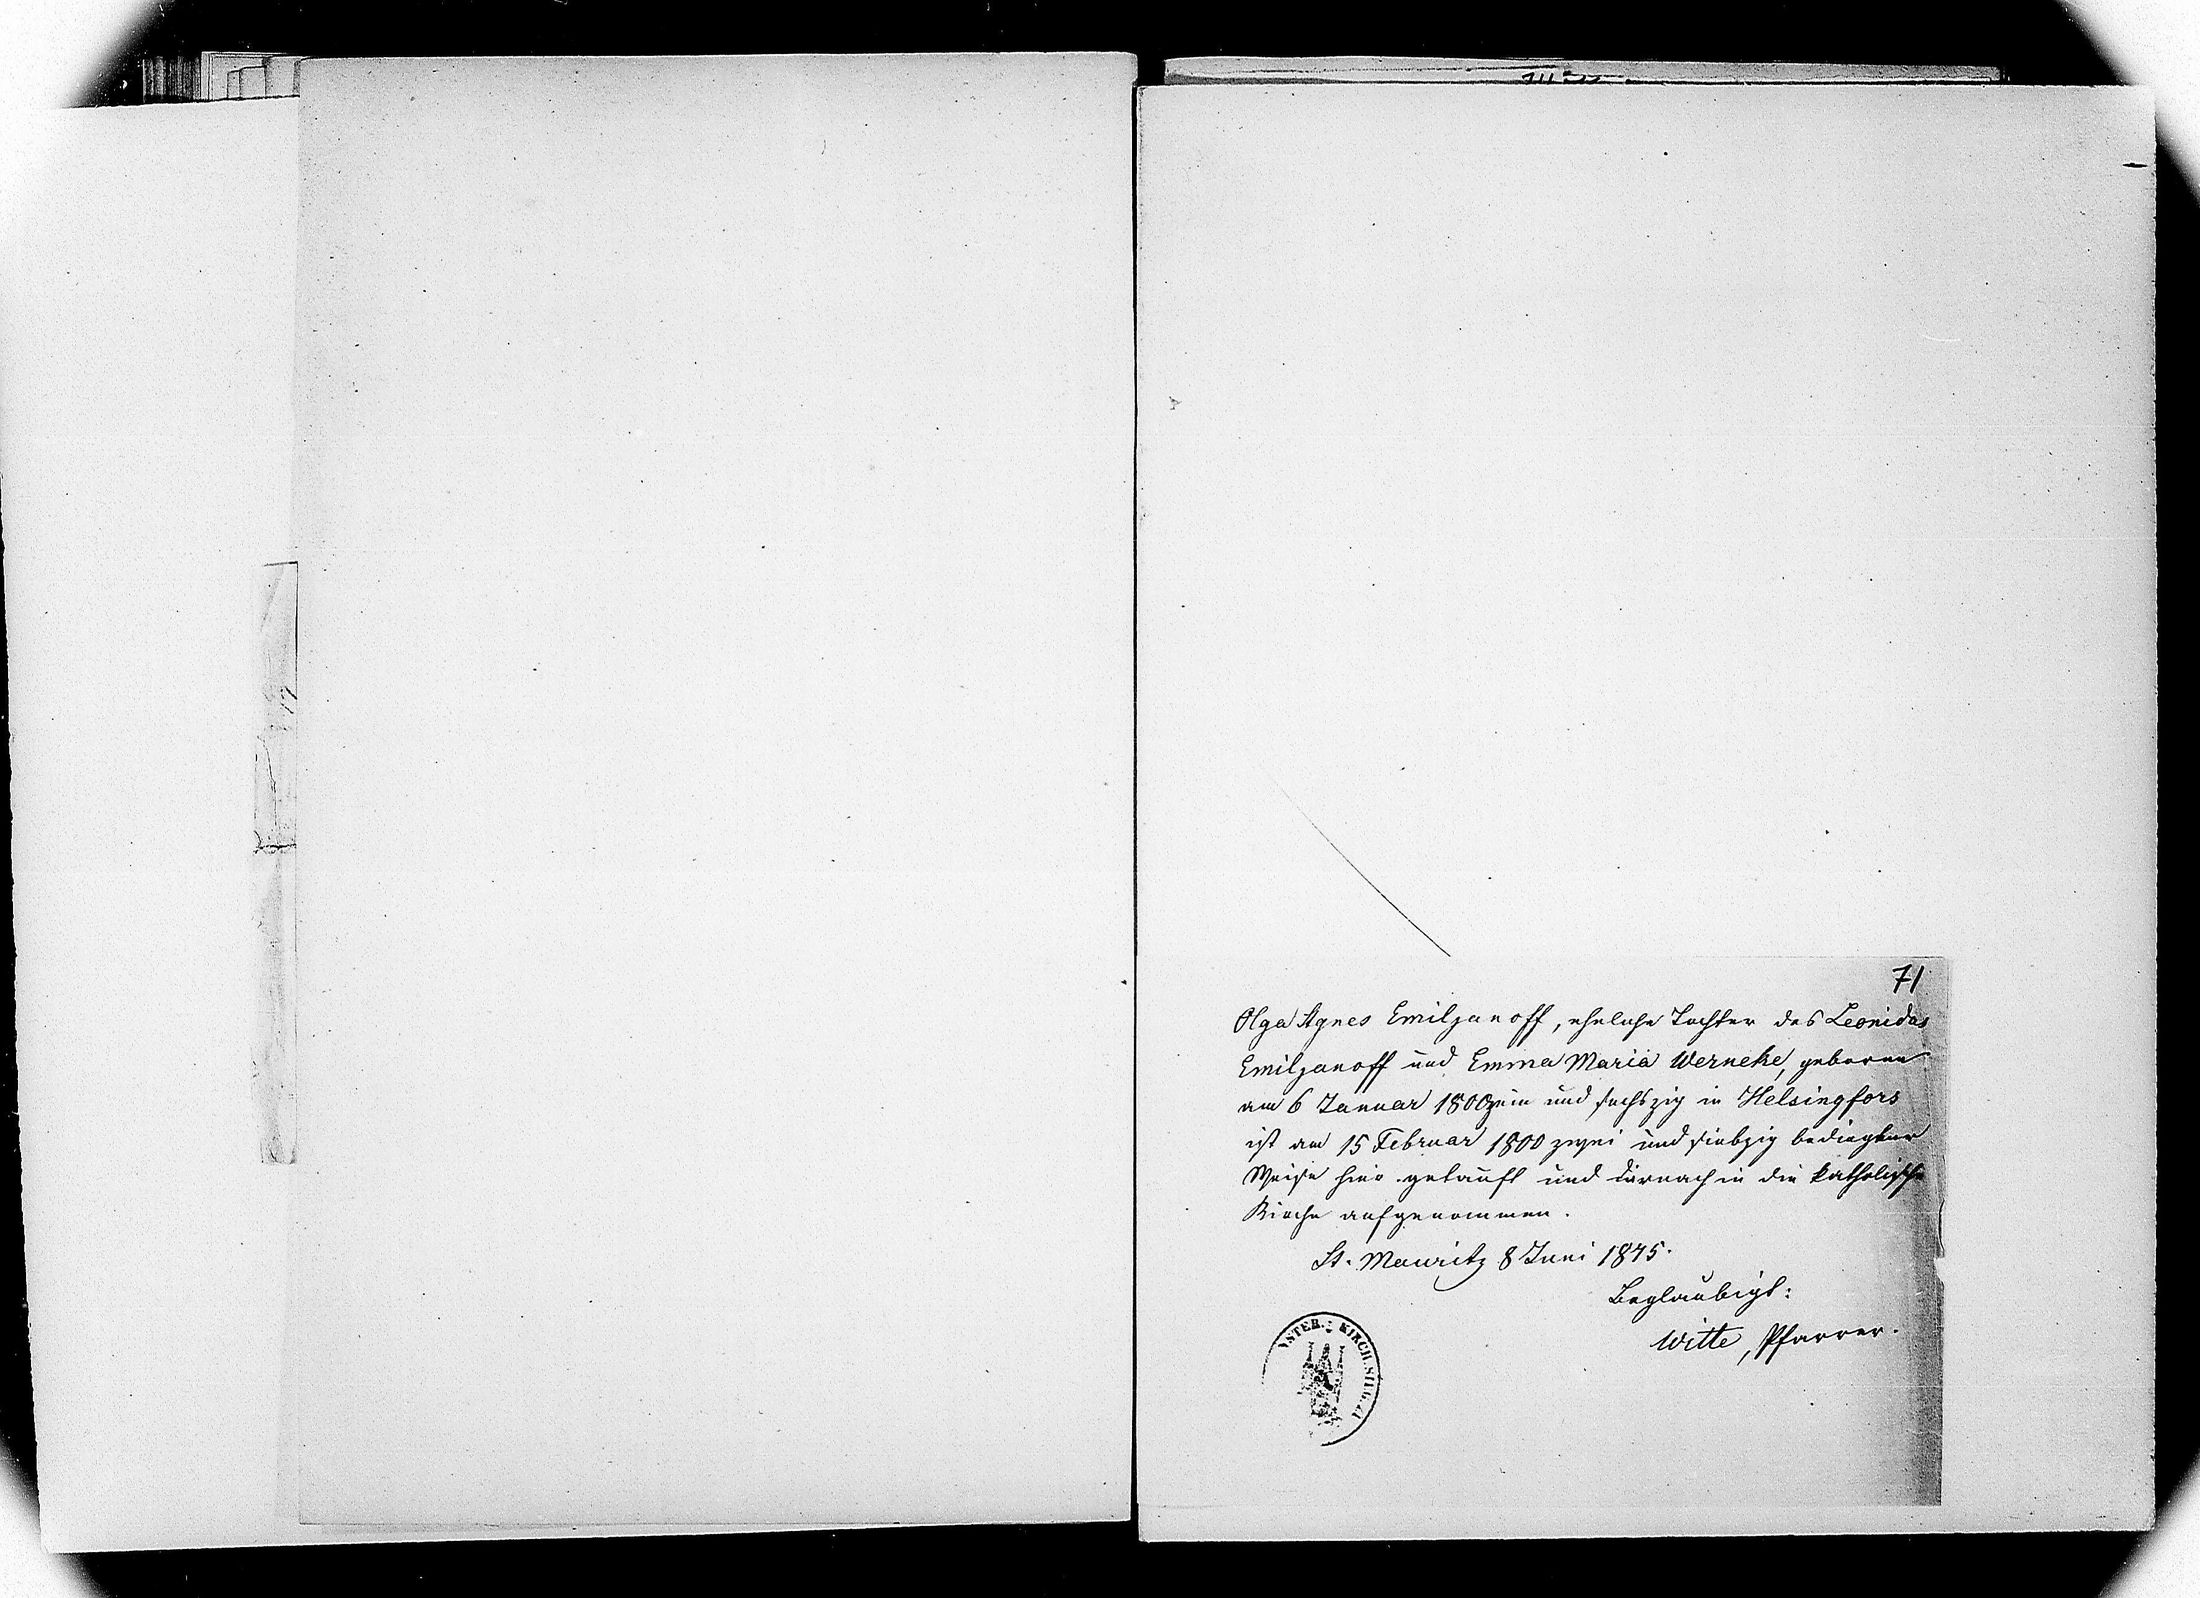 71
Olga Agnes Emiljanoff, eheliche Tochter des Leonidas
Emiljanoff und Emma Maria Werneke, geboren
am 6 Januar 1800 ein und sechszig in Helsingfors
ist am 15 Februar 1800 zwei und siebzig bedingter
Weise hier getauft und darnach in die katholische
Kirche aufgenommen.
St. Mauritz 8 Juni 1875.
Beglaubigt:
Witte, Pfarrer.
KIRCH.